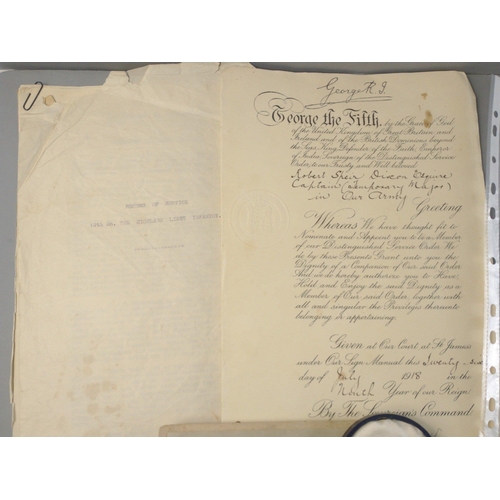 RECORD OF SERVICE
THE HIGHLAND LIGHT INFANTRY.
George R. I.
George the Fifth, by the Grace of God
of the United Kingdom of Great Britain and
Ireland and of the British Dominions beyond
the Seas, King, Defender of the Faith, Emperor
of India, Sovereign of the Distinguished Service
Order, to our Trusty and Well beloved
Robert Dixon Esquire
Captain (temporary Major)
in Our Army
Greeting
Whereas We have thought fit to
Nominate and Appoint you to be a Member
of our Distinguished Service Order We
do by these Presents Grant unto you the
Dignity of a Companion of Our said Order
And we do hereby authorize you to Have,
Hold and Enjoy the said Dignity as a
Member of Our said Order, together with
all and singular the Privileges thereunto
belonging or appertaining.
Given at Our Court at St James's
under Our Sign Manual this Twenty-
day of July 1918 in the
Ninth Year of our Reign.
By The Sovereign's Command